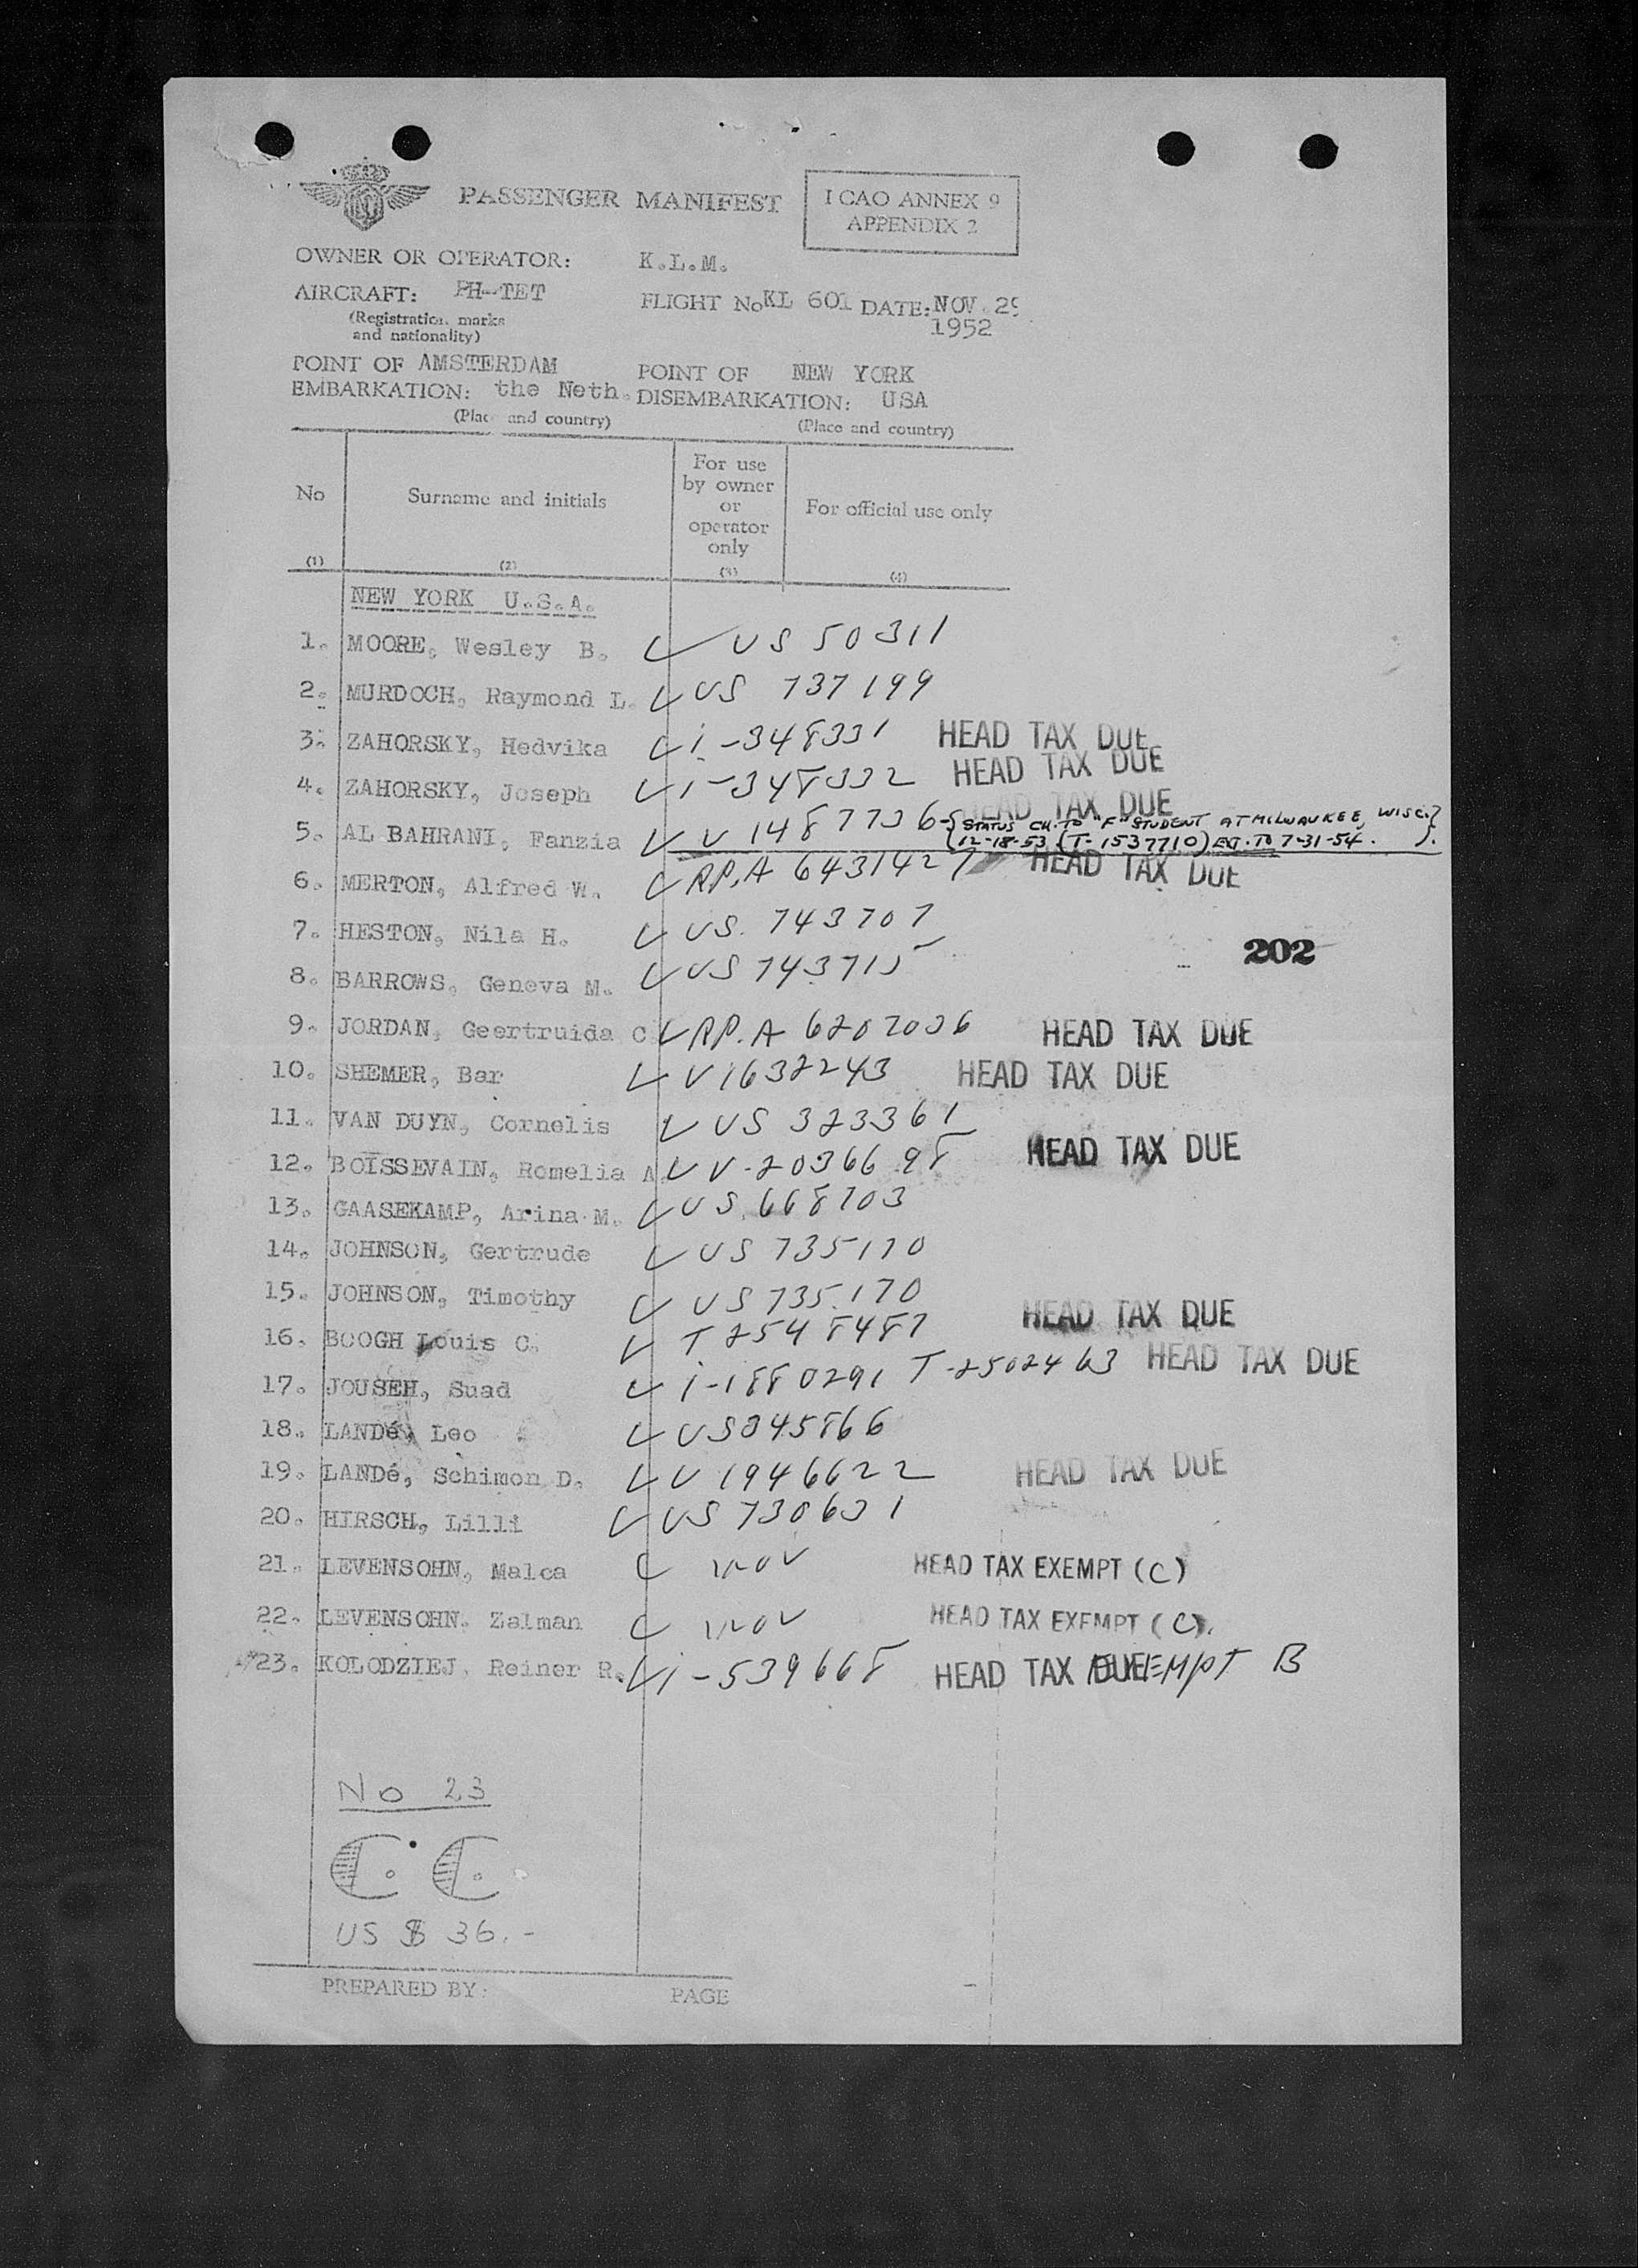 PASSENGER MANIFEST
I CAO ANNEX 9
APPENDIX 2
OWNER OR OPERATOR: K.L.M.
AIRCRAFT: PH-TET FLIGHT No KL 601 DATE: NOV. 29
1952
(Registration marks
and nationality)
POINT OF AMSTERDAM POINT OF NEW YORK
EMBARKATION: the Neth. DISEMBARKATION: USA
(Place and country) (Place and country)
No Surname and initials For use by owner or operator only For official use only
(1) (2) (3) (4)
NEW YORK U.S.A.
1. MOORE, Wesley B. US 50311
2. MURDOCH, Raymond L. US 737199
3. ZAHORSKY, Hedvika i-348331 HEAD TAX DUE
4. ZAHORSKY, Joseph i-348332 HEAD TAX DUE
HEAD TAX DUE
5. AL BAHRANI, Fanzia V 1487736 {STATUS CH. TO "F" STUDENT AT MILWAUKEE, WISC.}
(12-18-53 (T-1537710) EXT. TO 7-31-54. ).
6. MERTON, Alfred W. RP.A 6431427 HEAD TAX DUE
7. HESTON, Nila H. US. 743707
202
8. BARROWS, Geneva M. US 743715
9. JORDAN, Geertruida C RP.A 6207036 HEAD TAX DUE
10. SHEMER, Bar V1632243 HEAD TAX DUE
11. VAN DUYN, Cornelis US 323361
12. BOISSEVAIN, Romelia A. V-2036698 HEAD TAX DUE
13. GAASEKAMP, Arina M. US. 668703
14. JOHNSON, Gertrude US 735170
15. JOHNSON, Timothy US 735170
16. BOOGH Louis C. T 2548487 HEAD TAX DUE
17. JOUSEH, Suad i-1880291 T-2502463 HEAD TAX DUE
18. LANDé, Leo US045866
19. LANDé, Schimon D. V 1946622 HEAD TAX DUE
20. HIRSCH, Lilli US 730631
21. LEVENSOHN, Malca HEAD TAX EXEMPT (C)
22. LEVENSOHN, Zalman HEAD TAX EXEMPT (C).
23. KOLODZIEJ, Reiner R. i-539668 HEAD TAX DUE EXEMPT B
No 23
C. C.
US $ 36.-
PREPARED BY: PAGE